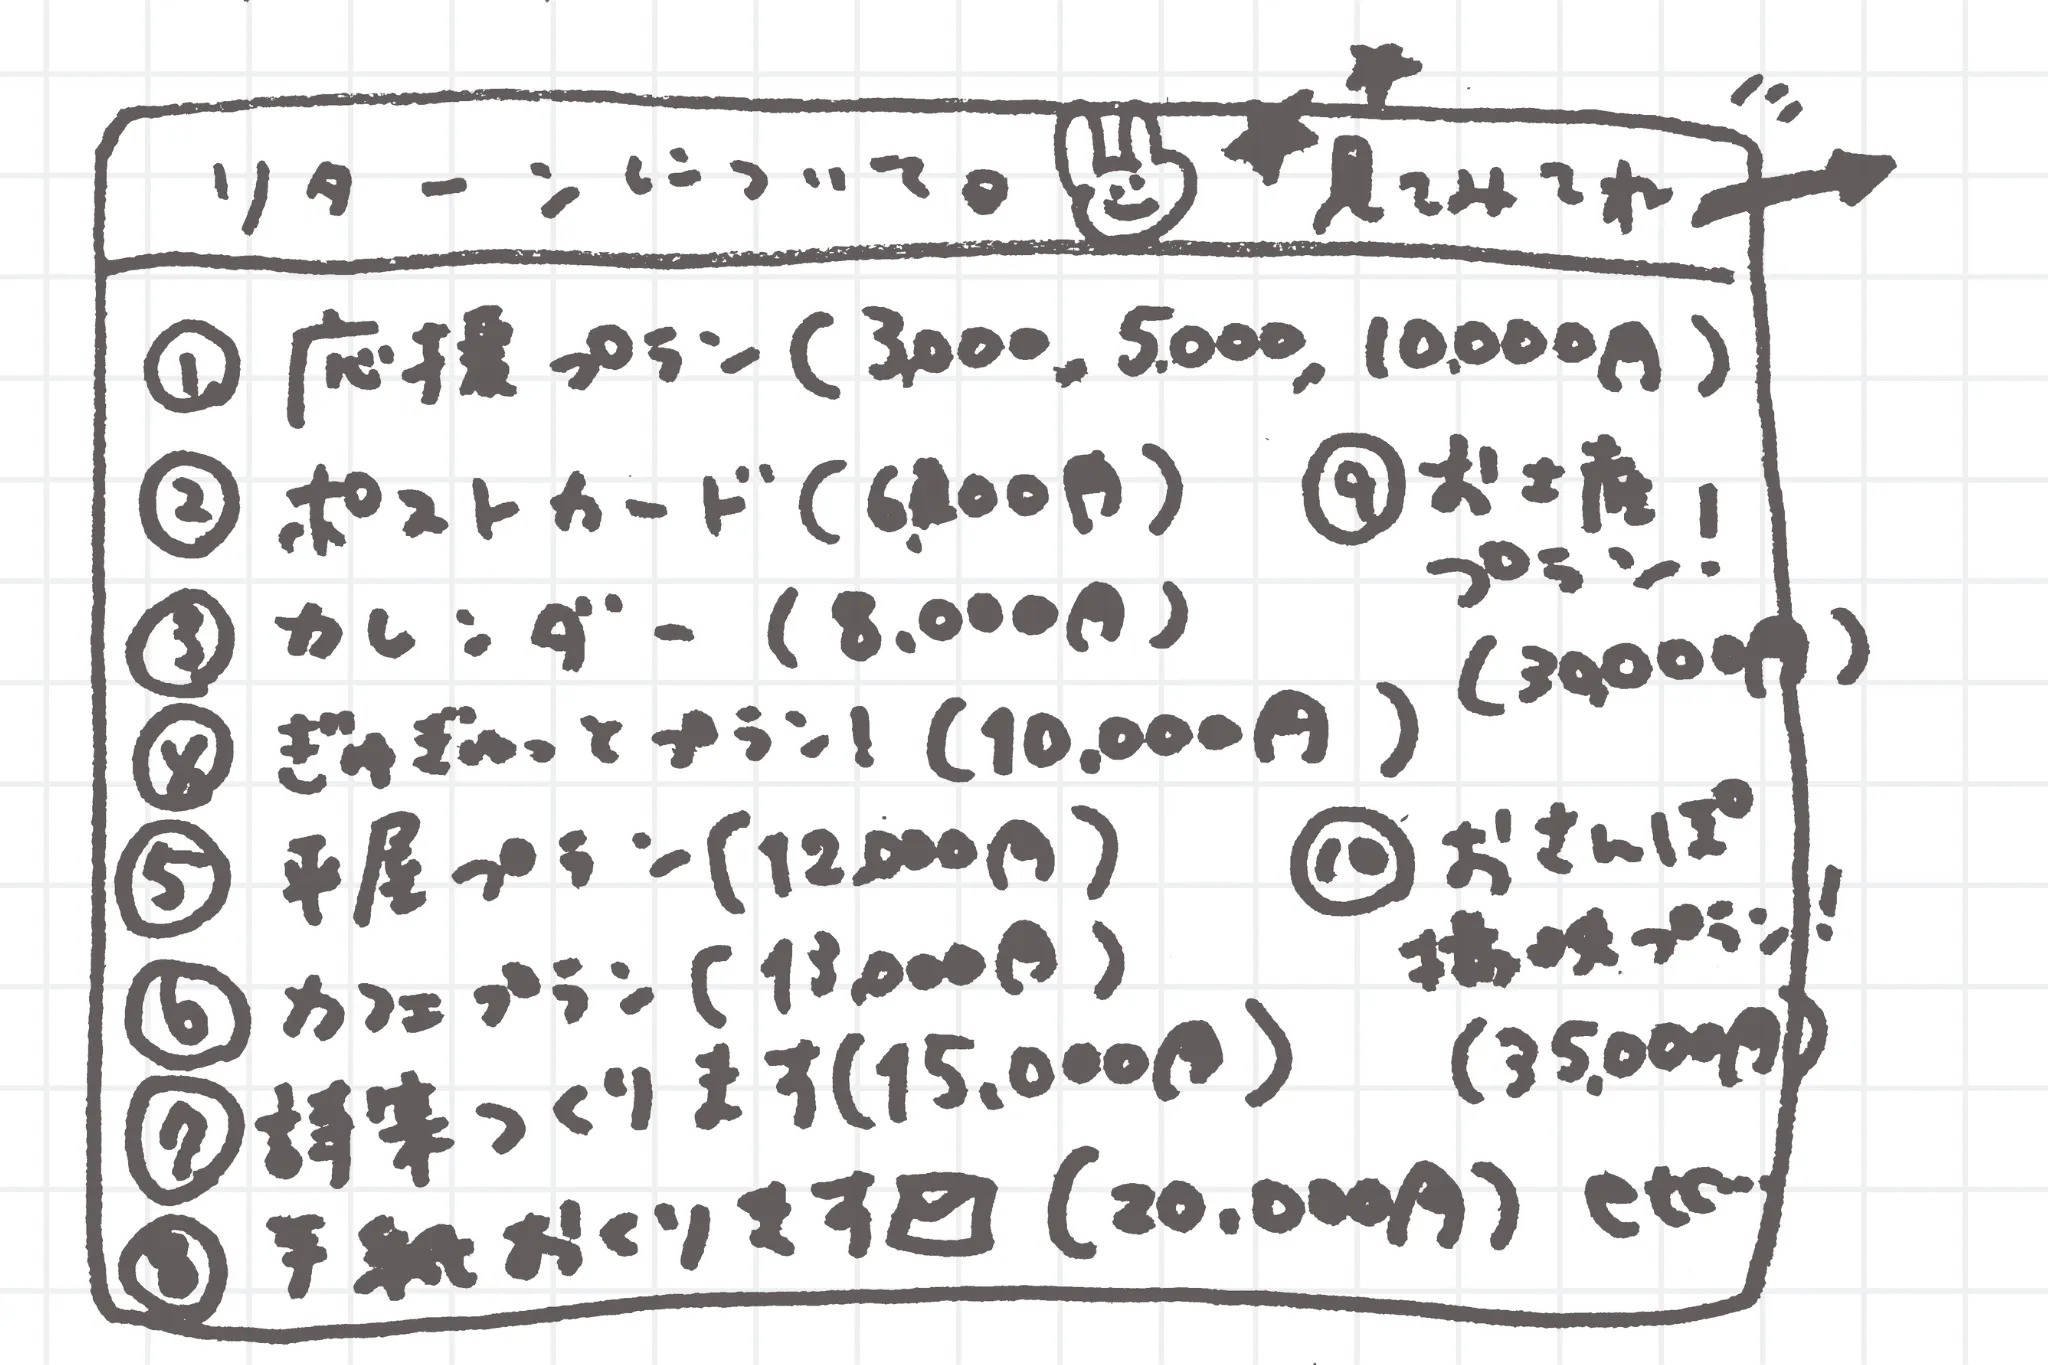 リターンについて。 見てみてね
① 応援プラン(3,000, 5.000, 10.000円)
② ポストカード(6.000円)
③ カレンダー(8.000円)
④ ぎゅぎゅっとプラン!(10.000円)
⑤ 平屋プラン(12,000円)
⑥ カフェプラン(13,000円)
⑦ 詩集つくります(15.000円)
⑧ 手紙おくります(20.000円) etc…
⑨ お土産
プラン!
(30,000円)
⑩ おさんぽ
撮映プラン!
(35.000円)